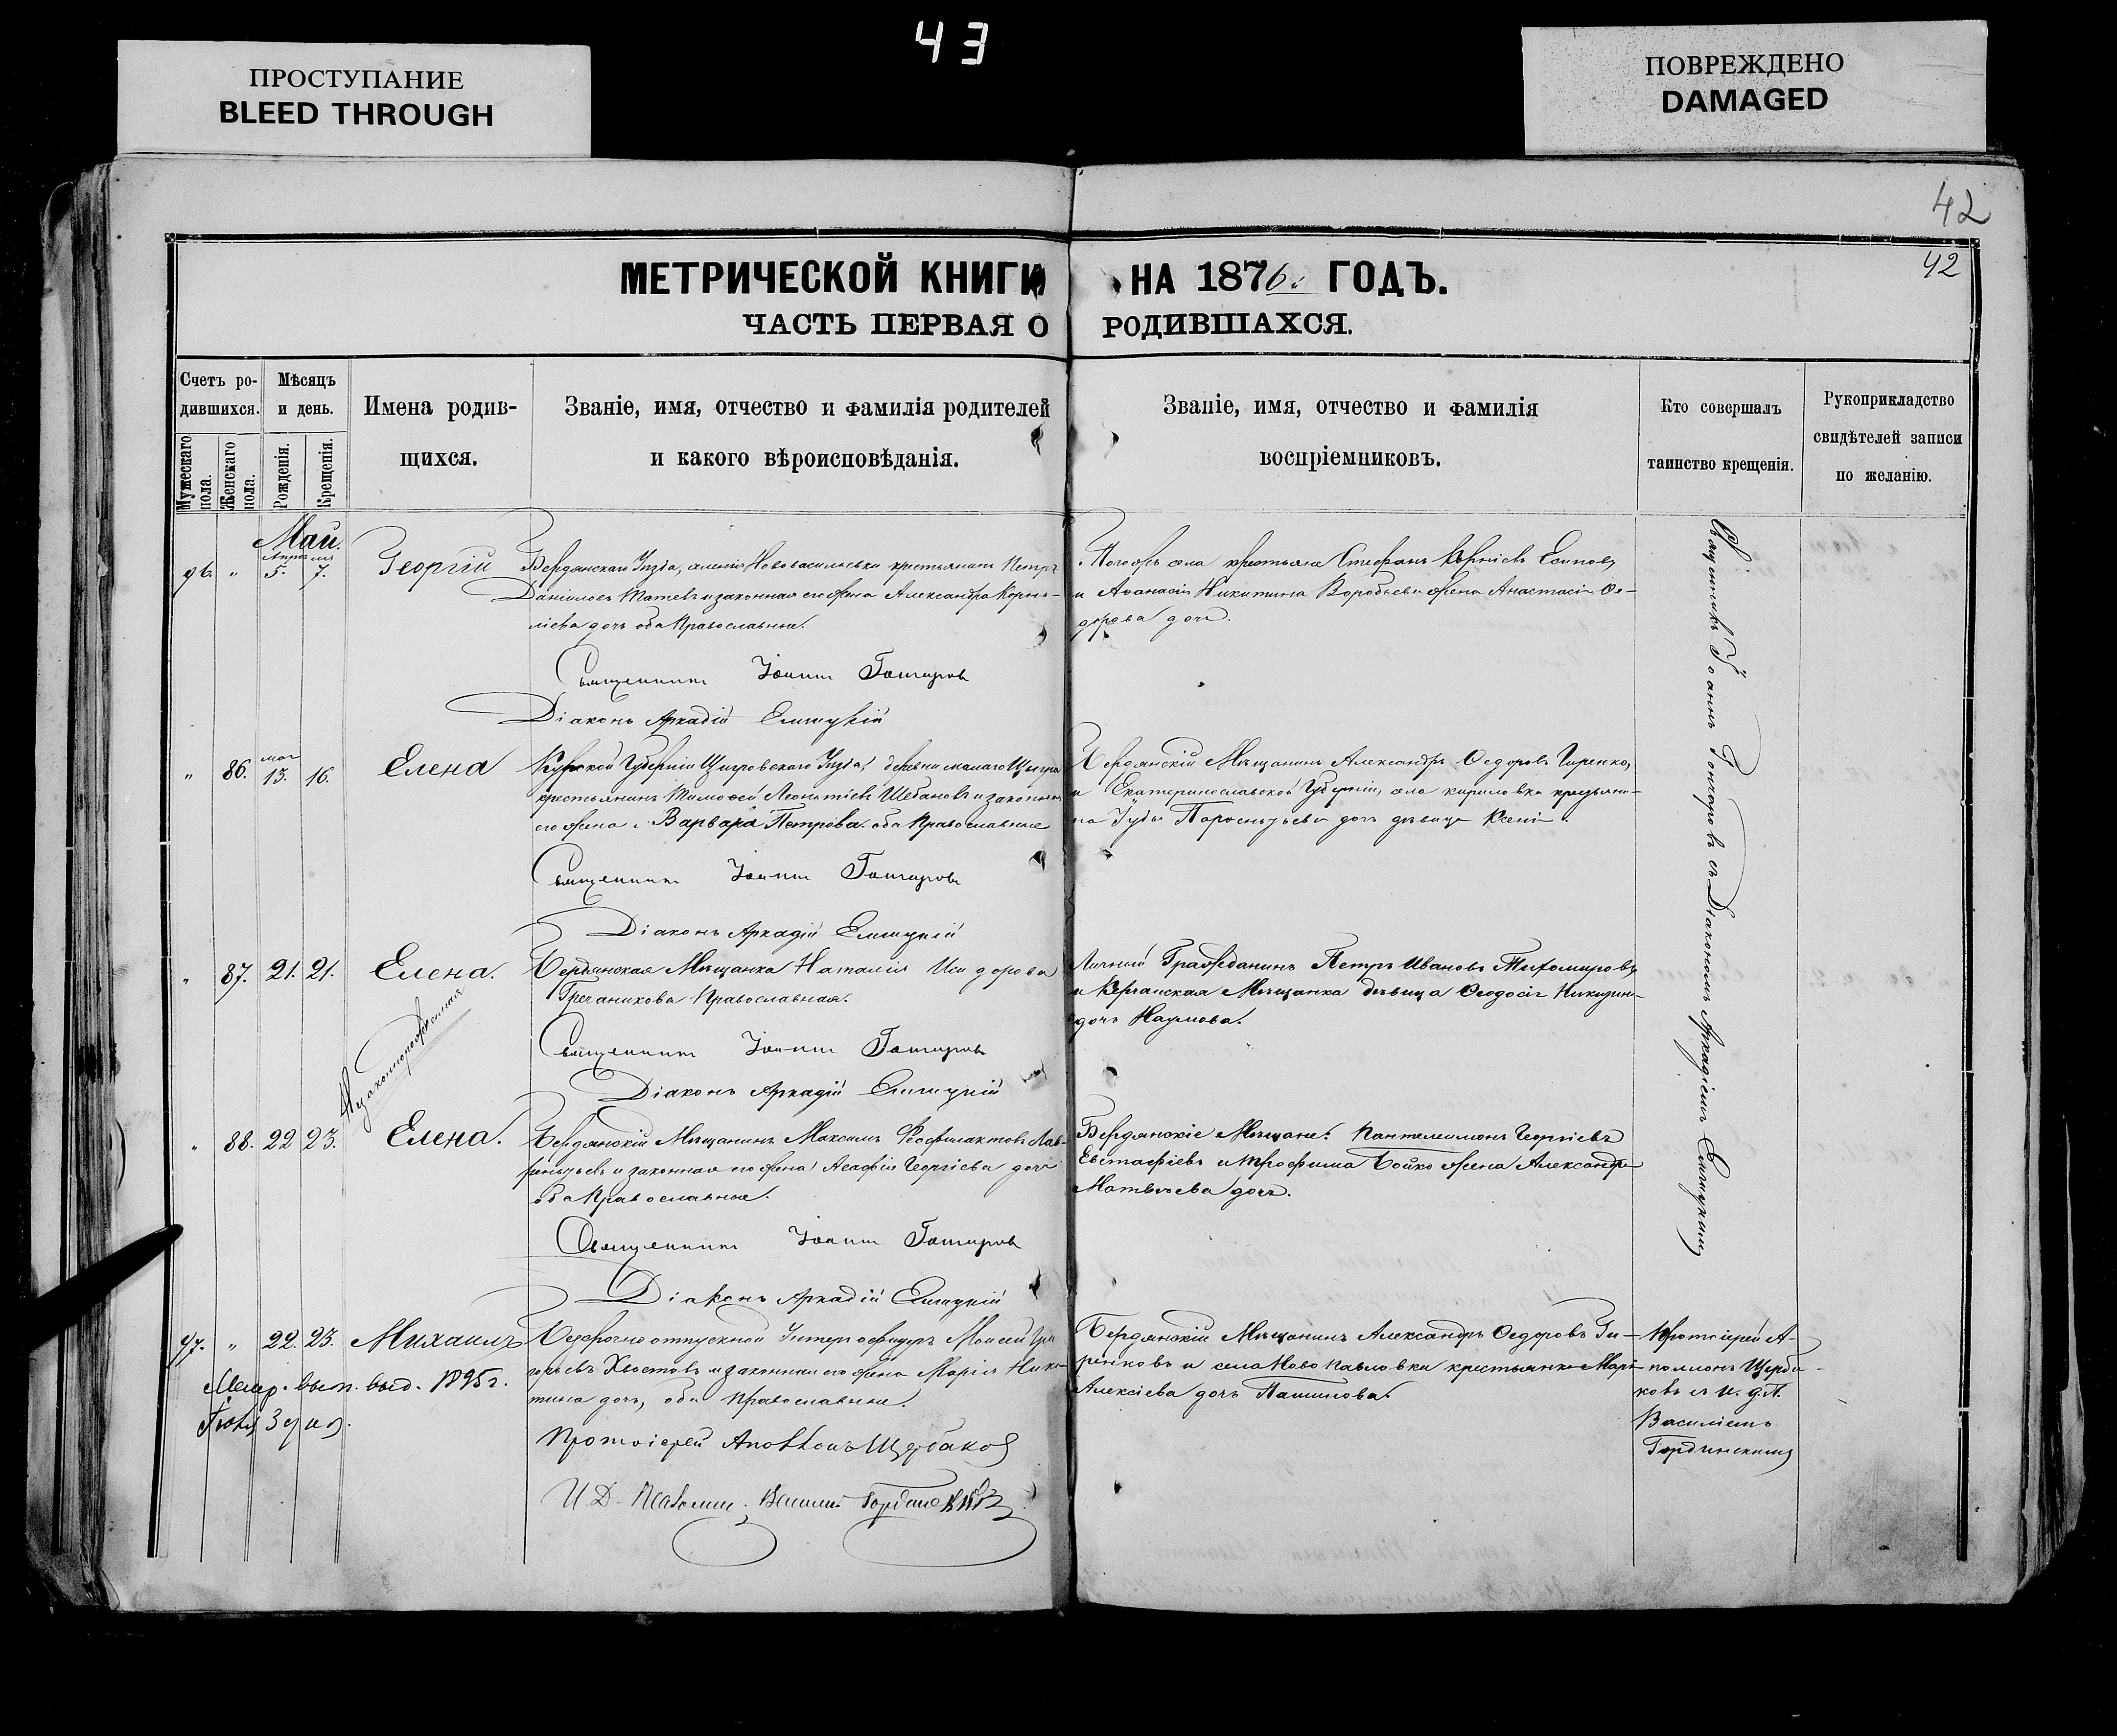 43
ПРОСТУПАНИЕ
BLEED THROUGH
ПОВРЕЖДЕНО
DAMAGED
42
42
МЕТРИЧЕСКОЙ КНИГИ НА 1876. ГОДЪ.
ЧАСТЬ ПЕРВАЯ О РОДИВШИХСЯ.
Счетъ ро-
дившихся.
Мужескаго пола.
Женскаго пола.
Мѣсяцъ
и день.
Рожденія.
Крещенія.
Имена родив-
щихся.
Званіе, имя, отчество и фамилія родителей
и какого вѣроисповѣданія.
Званіе, имя, отчество и фамилія
воспріемниковъ.
Кто совершалъ
таинство крещенія.
Рукоприкладство
свидѣтелей записи
по желанію.
Май.
96. " Апрѣля 5. 7. Георгій
Бердянскаго Уѣзда, селенія Нововасильевки крестьянинъ Петръ
Даніиловъ и законная его жена Александра Корни-
ліева дочь оба Православные.
Священникъ Іоаннъ Гончаровъ
Діаконъ Аркадій
села крестьяне Стефанъ Есиповъ
и Аѳанасія Никитина Воробьева жена Анастасія Ѳе-
дорова дочь.
Священникъ Іоаннъ Гончаровъ съ Діакономъ Аркадіемъ
" 86. мая 13. 16. Елена
Курской Губерніи Щигровскаго Уѣзда, деревни малаго Щигра
крестьянинъ Тимофей Леонтіевъ Шебановъ и законная
его жена Варвара Петрова оба Православные
Священникъ Іоаннъ Гончаровъ
Діаконъ Аркадій
Бердянскій Мѣщанинъ Александръ Ѳедоровъ Гиренко,
и Екатеринославской Губерніи, села кириловки крестьяни-
на дочь дѣвица Ксенія.
" 87. 21. 21. Елена.
Незаконнорожденная
Бердянская Мѣщанка Наталія Исидорова
Гречаникова Православная.
Священникъ Іоаннъ Гончаровъ
Діаконъ Аркадій
Личный Гражданинъ Петръ Ивановъ Тихомировъ
и Мѣщанка дѣвица Ѳеодосія Никитина
дочь Наумова.
" 88. 22 23. Елена.
Бердянскій Мѣщанинъ Максимъ Ѳеофилактовъ Лав-
рентьевъ и законная его жена Агафія Георгіева дочь
оба Православные.
Священникъ Іоаннъ Гончаровъ
Діаконъ Аркадій
Бердянскіе Мѣщане: Пантелеимонъ Георгіевъ
Евстафіевъ и Трофима Бойко жена Александра
Матвѣева дочь.
97. " 22. 23. Михаилъ
Безсрочно отпускной Унтеръ офицеръ Моисей Гри-
горьевъ Хвостовъ и законная его жена Марія Ники-
тина дочь, оба Православные.
Метр. вып. выд. 1895 г.
Іюля 3 дня.
Протоіерей Аполлонъ Щербаковъ
И. Д. Псаломщ. Василій
Бердянскій Мѣщанинъ Александръ Ѳедоровъ Ги-
ренковъ и села Новопавловки крестьянка Марія
Алексіева дочь Пашинова.
Протоіерей А-
поллонъ Щерба-
ковъ съ и. д. п.
Василіемъ